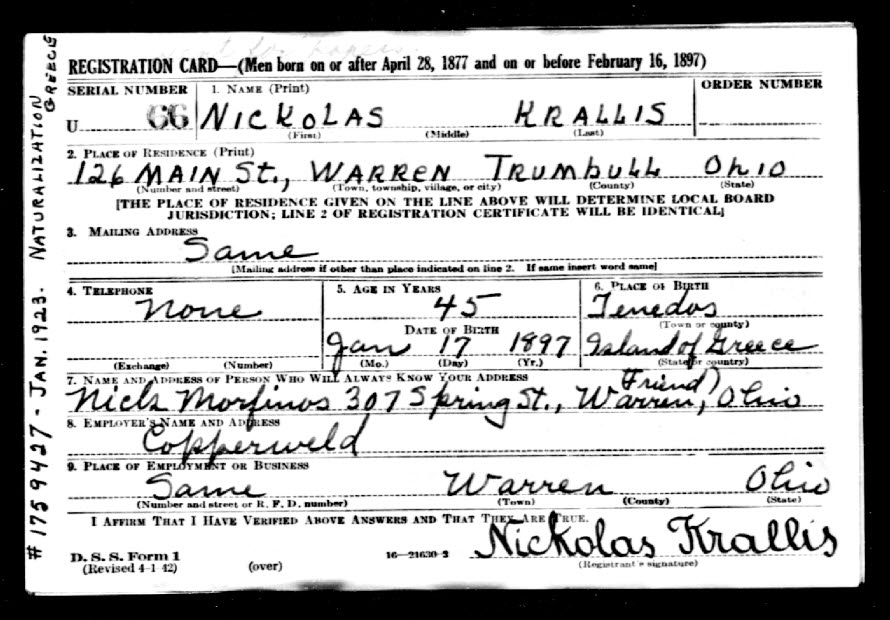 REGISTRATION CARD—(Men born on or after April 28, 1877 and on or before February 16, 1897)
SERIAL NUMBER 1. NAME (Print) ORDER NUMBER
U 66 NICKOLAS KRALLIS
(First) (Middle) (Last)
2. PLACE OF RESIDENCE (Print)
126 MAIN St., WARREN TRUMbULL OhIO
(Number and street) (Town, township, village, or city) (County) (State)
[THE PLACE OF RESIDENCE GIVEN ON THE LINE ABOVE WILL DETERMINE LOCAL BOARD
JURISDICTION; LINE 2 OF REGISTRATION CERTIFICATE WILL BE IDENTICAL]
3. MAILING ADDRESS
Same
[Mailing address if other than place indicated on line 2. If same insert word same]
4. TELEPHONE 5. AGE IN YEARS 6. PLACE OF BIRTH
None 45 Tenedos
(Town or county)
DATE OF BIRTH
Jan 17 1897 Island of Greece
(Exchange) (Number) (Mo.) (Day) (Yr.) (State or country)
7. NAME AND ADDRESS OF PERSON WHO WILL ALWAYS KNOW YOUR ADDRESS
Friend)
Nick Morfinos 307 Spring St., Warren, Ohio
8. EMPLOYER'S NAME AND ADDRESS
Copperweld
9. PLACE OF EMPLOYMENT OR BUSINESS
Same Warren Ohio
(Number and street or R. F. D. number) (Town) (County) (State)
I AFFIRM THAT I HAVE VERIFIED ABOVE ANSWERS AND THAT THEY ARE TRUE.
D. S. S. Form 1 16—21630-3 Nickolas Krallis
(Revised 4-1-42) (over) (Registrant's signature)
# 1759427 - JAN. 1923. NATURALIZATION
GREECE